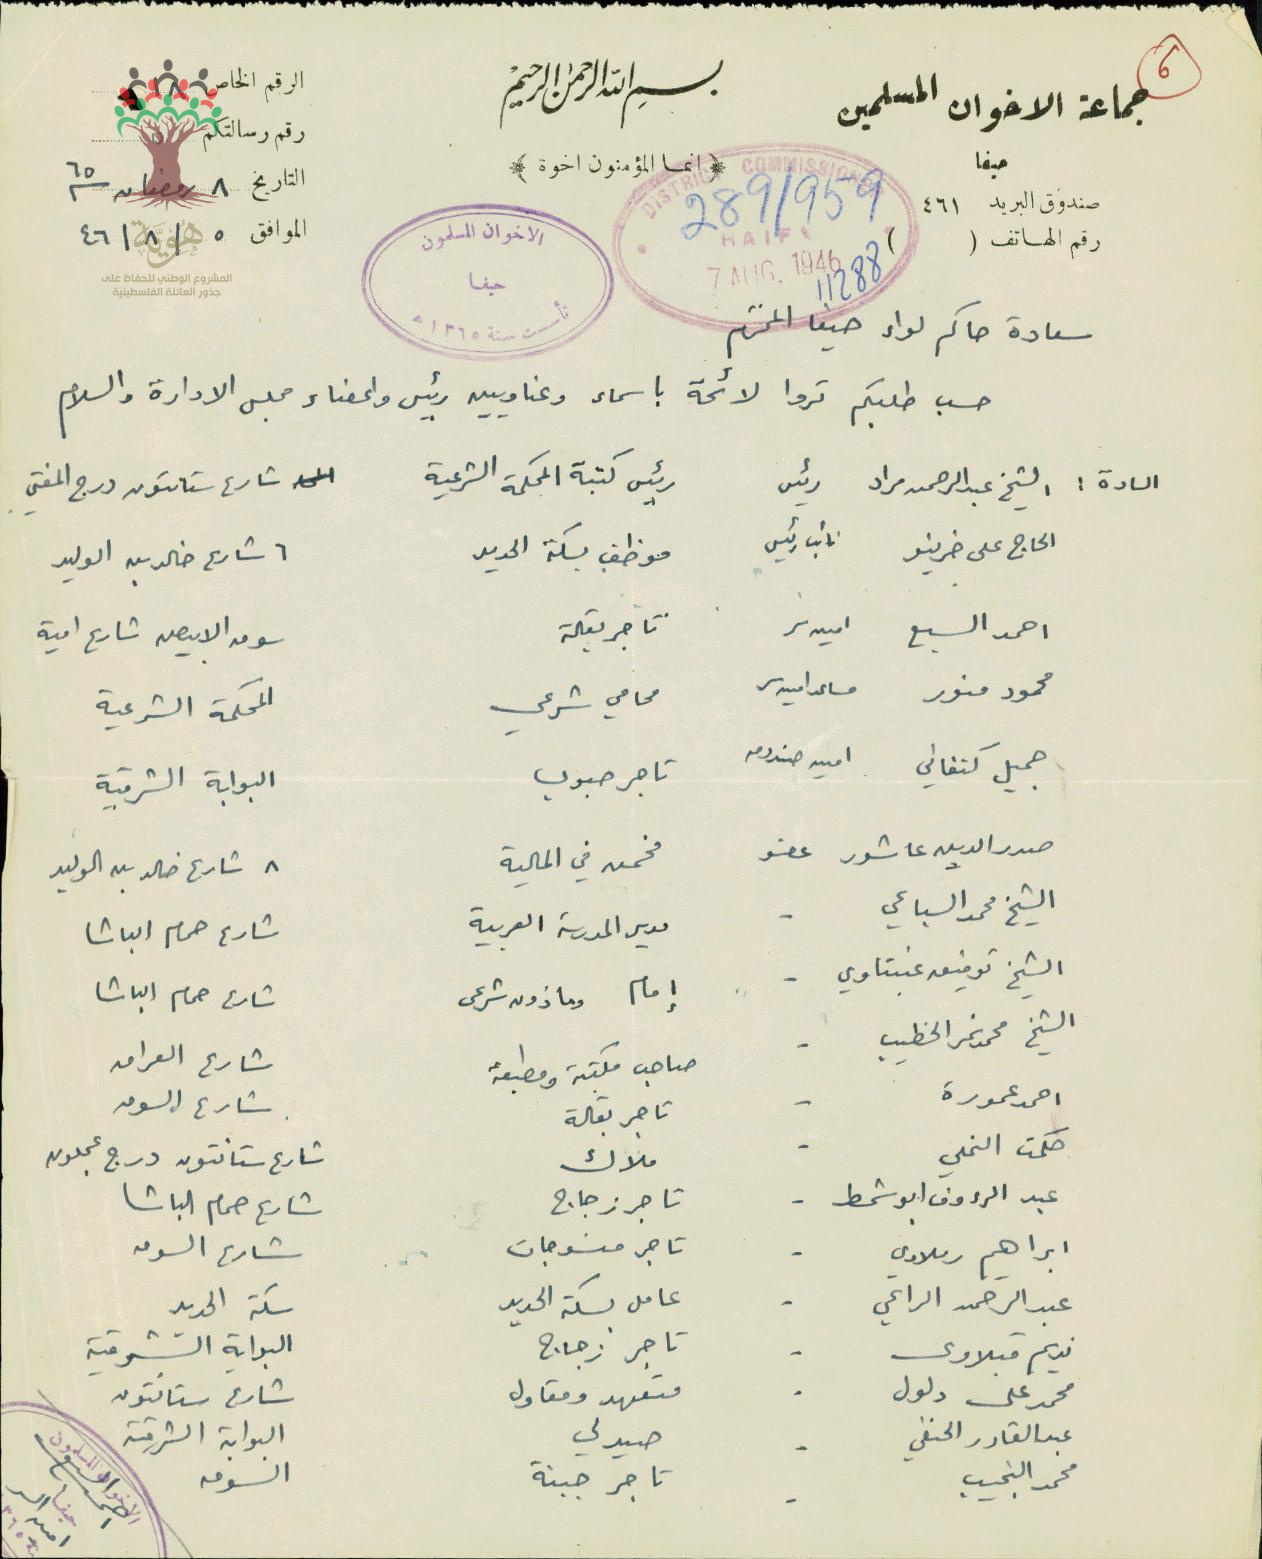 ٦
بسم الله الرحمن الرحيم
جماعة الاخوان المسلمين
حيفا
﴿ انما المؤمنون اخوة ﴾
صندوق البريد ٤٦١
رقم الهاتف ( )
الرقم الخاص ١٨
رقم رسالتكم
التاريخ ٨ رمضان سنة ٦٥
الموافق ٥ / ٨ / ٤٦
هوية
المشروع الوطني للحفاظ على
جذور العائلة الفلسطينية
الاخوان المسلمون
حيفا
تأسست سنة ١٣٦٥ ه
DISTRICT COMMISSIONER
289/959
HAIFA
7 AUG. 1946
11288
سعادة حاكم لواء حيفا المحترم
حسب طلبكم تروا لائحة باسماء وعناوين رئيس واعضاء مجلس الادارة والسلام
السادة : الشيخ عبدالرحمن مراد رئيس رئيس كتبة المحكمة الشرعية شارع ستانتون درج المفتي
الحاج علي خرينو نائب رئيس موظف بسكة الحديد ٦ شارع خالد بن الوليد
احمد السبع امين سر تاجر بقالة سوق الابيض شارع امية
محمود منور مساعد امين سر محامي شرعي المحكمة الشرعية
جميل كنفاني امين صندوق تاجر حبوب البوابة الشرقية
صدر الدين عاشور عضو مخمن في المالية ٨ شارع خالد بن الوليد
الشيخ محمد السباعي - مدير المدرسة العربية شارع حمام الباشا
الشيخ توفيق عنبتاوي - إمام وماذون شرعي شارع حمام الباشا
الشيخ محمد نمر الخطيب - صاحب مكتبة ومطبعة شارع العراق
احمد عمورة - تاجر بقالة شارع السوق
حكمت النملي - ملاك شارع ستانتون درج عجلون
عبد الرءوف ابو شحط - تاجر زجاج شارع حمام الباشا
ابراهيم رملاوي - تاجر منسوجات شارع السوق
عبد الرحمن الراعي - عامل بسكة الحديد سكة الحديد
نديم قبلاوي - تاجر زجاج البوابة الشرقية
محمد علي دلول - متعهد ومقاول شارع ستانتون
عبد القادر الحنفي - صيدلي البوابة الشرقية
محمد النجيب - تاجر جبنة السوق
الاخوان المسلمون
حيفا
احمد السبع
امين السر